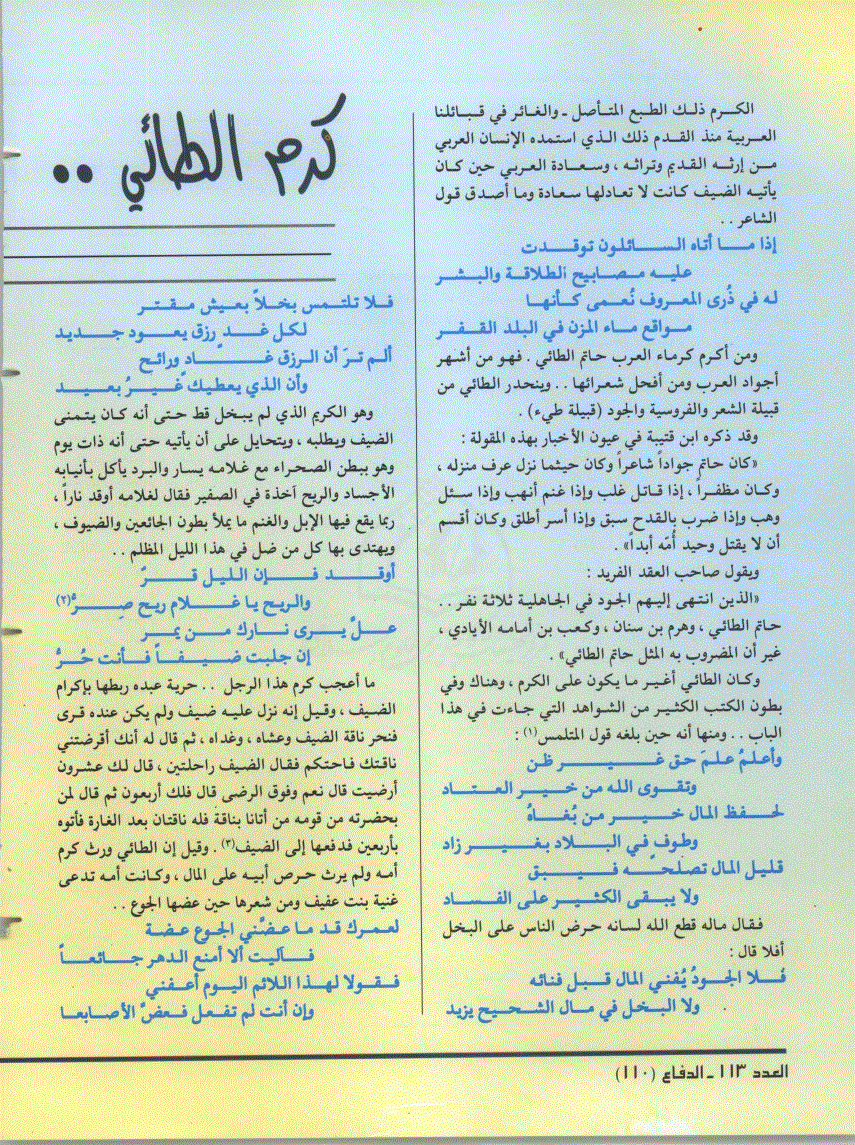 كرم الطائي ..
الكرم ذلك الطبع المتأصل ـ والغائر في قبائلنا
العربية منذ القدم ذلك الذي استمده الإنسان العربي
من إرثه القديم وتراثه ، وسعادة العربي حين كان
يأتيه الضيف كانت لا تعادلها سعادة وما أصدق قول
الشاعر ..
إذا ما أتاه السائلون توقدت
عليه مصابيح الطلاقة والبشر
له في ذُرى المعروف نُعمى كأنها
مواقع ماء المزن في البلد القفر
ومن أكرم كرماء العرب حاتم الطائي . فهو من أشهر
أجواد العرب ومن أفحل شعرائها .. وينحدر الطائي من
قبيلة الشعر والفروسية والجود (قبيلة طيء) .
وقد ذكره ابن قتيبة في عيون الأخبار بهذه المقولة :
«كان حاتم جواداً شاعراً وكان حيثما نزل عرف منزله ،
وكان مظفراً ، إذا قاتل غلب وإذا غنم أنهب وإذا سئل
وهب وإذا ضرب بالقدح سبق وإذا أسر أطلق وكان أقسم
أن لا يقتل وحيد أُمّه أبداً» .
ويقول صاحب العقد الفريد :
«الذين انتهى إليهم الجود في الجاهلية ثلاثة نفر ..
حاتم الطائي ، وهرم بن سنان ، وكعب بن أمامه الأيادي ،
غير أن المضروب به المثل حاتم الطائي» .
وكان الطائي أغير ما يكون على الكرم ، وهناك وفي
بطون الكتب الكثير من الشواهد التي جاءت في هذا
الباب .. ومنها أنه حين بلغه قول المتلمس(١) :
وأعلمُ علمَ حق غير ظن
وتقوى الله من خير العتاد
لحفظ المال خير من بُغاهُ
وطوفٍ في البلاد بغير زاد
قليل المال تصلحه فيبق
ولا يبقى الكثير على الفساد
فقال ماله قطع الله لسانه حرض الناس على البخل
أفلا قال :
فُلا الجودُ يُفني المال قبل فنائه
ولا البخل في مال الشحيح يزيد
فلا تلتمس بخلاً بعيش مقتر
لكل غد رزق يعود جديد
ألم ترَ أن الرزق غاد ورائح
وأن الذي يعطيك غيرُ بعيد
وهو الكريم الذي لم يبخل قط حتى أنه كان يتمنى
الضيف ويطلبه ، ويتحايل على أن يأتيه حتى أنه ذات يوم
وهو ببطن الصحراء مع غلامه يسار والبرد يأكل بأنيابه
الأجساد والريح آخذة في الصفير فقال لغلامه أوقد ناراً ،
ربما يقع فيها الإبل والغنم ما يملأ بطون الجائعين والضيوف ،
ويهتدى بها كل من ضل في هذا الليل المظلم ..
أوقد فإن الليل قرّ
والريح يا غلام ريح صِرُّ(٢)
علَّ يرى نارك من يمر
إن جلبت ضيفاً فأنت حُرُّ
ما أعجب كرم هذا الرجل .. حرية عبده ربطها بإكرام
الضيف ، وقيل إنه نزل عليه ضيف ولم يكن عنده قرى
فنحر ناقة الضيف وعشاه ، وغداه ، ثم قال له أنك أقرضتني
ناقتك فاحتكم فقال الضيف راحلتين ، قال لك عشرون
أرضيت قال نعم وفوق الرضى قال فلك أربعون ثم قال لمن
بحضرته من قومه من أتانا بناقة فله ناقتان بعد الغارة فأتوه
بأربعين فدفعها إلى الضيف(٣) . وقيل إن الطائي ورث كرم
أمه ولم يرث حرص أبيه على المال ، وكانت أمه تدعى
غنية بنت عفيف ومن شعرها حين عضها الجوع ..
لعمرك قد ما عضَّني الجوع عضة
فآليت ألا أمنع الدهر جائعاً
فقولا لهذا اللائم اليوم أعفني
وإن أنت لم تفعل فعضّ الأصابعا
العدد ١١٣ ـ الدفاع (١١٠)